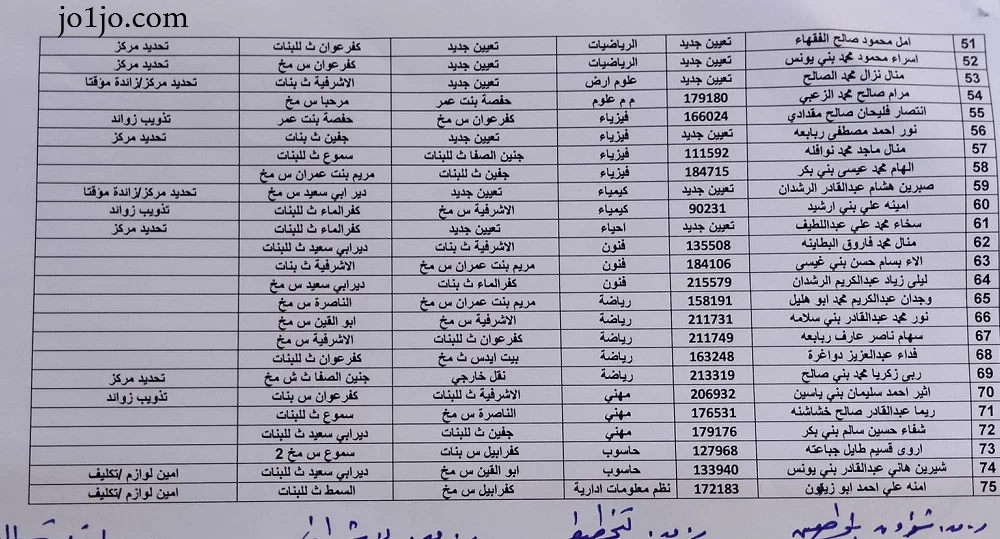 jo1jo.com
51 امل محمود صالح الفقهاء تعيين جديد الرياضيات تعيين جديد كفرعوان ث للبنات تحديد مركز
52 اسراء محمود محمد بني يونس تعيين جديد الرياضيات تعيين جديد كفرعوان س مخ تحديد مركز
53 منال نزال محمد الصالح تعيين جديد علوم ارض تعيين جديد الاشرفية ث بنات تحديد مركز/زائدة مؤقتا
54 مرام صالح محمد الزعبي 179180 م م علوم حفصة بنت عمر مرحبا س مخ
55 انتصار فليحان صالح مقدادي 166024 فيزياء كفرعوان س مخ حفصة بنت عمر تذويب زوائد
56 نور احمد مصطفى ربابعه تعيين جديد فيزياء تعيين جديد جفين ث بنات تحديد مركز
57 منال ماجد محمد نوافله 111592 فيزياء جنين الصفا ث للبنات سموع ث للبنات
58 الهام محمد عيسى بني بكر 184715 فيزياء جفين ث للبنات مريم بنت عمران س مخ
59 صبرين هشام عبدالقادر الرشدان تعيين جديد كيمياء تعيين جديد دير ابي سعيد س مخ تحديد مركز/زائدة مؤقتا
60 امينه علي بني ارشيد 90231 كيمياء الاشرفية س مخ كفرالماء ث للبنات تذويب زوائد
61 سخاء محمد علي عبداللطيف تعيين جديد احياء تعيين جديد كفرالماء ث للبنات تحديد مركز
62 منال محمد فاروق البطاينه 135508 فنون الاشرفية ث بنات ديرابي سعيد ث للبنات
63 الاء بسام حسن بني عيسى 184106 فنون مريم بنت عمران س مخ الاشرفية ث بنات
64 ليلى زياد عبدالكريم الرشدان 215579 فنون كفرالماء ث بنات ديرابي سعيد س مخ
65 وجدان عبدالكريم محمد ابو هليل 158191 رياضة مريم بنت عمران س مخ الناصرة س مخ
66 نور محمد عبدالقادر بني سلامه 211731 رياضة الاشرفية س مخ ابو القين س مخ
67 سهام ناصر عارف ربابعه 211749 رياضة كفرعوان ث للبنات الاشرفية س مخ
68 فداء عبدالعزيز دواغرة 163248 رياضة بيت ايدس ث مخ كفرعوان ث للبنات
69 ربى زكريا محمد بني صالح 213319 رياضة نقل خارجي جنين الصفا ث ش مخ تحديد مركز
70 اثير احمد سليمان بني ياسين 206932 مهني الاشرفية ث للبنات كفرعوان س بنات تذويب زوائد
71 ريما عبدالقادر صالح خشاشنه 176531 مهني الناصرة س مخ سموع ث للبنات
72 شفاء حسين سالم بني بكر 179176 مهني جفين ث للبنات ديرابي سعيد ث للبنات
73 اروى قسيم طايل جباعته 127968 حاسوب كفرابيل س بنات سموع س مخ 2
74 شيرين هاني عبدالقادر بني يونس 133940 حاسوب ابو القين س مخ ديرابي سعيد ث للبنات امين لوازم /تكليف
75 امنه علي احمد ابو زيتون 172183 نظم معلومات ادارية كفرابيل س مخ السمط ث للبنات امين لوازم /تكليف